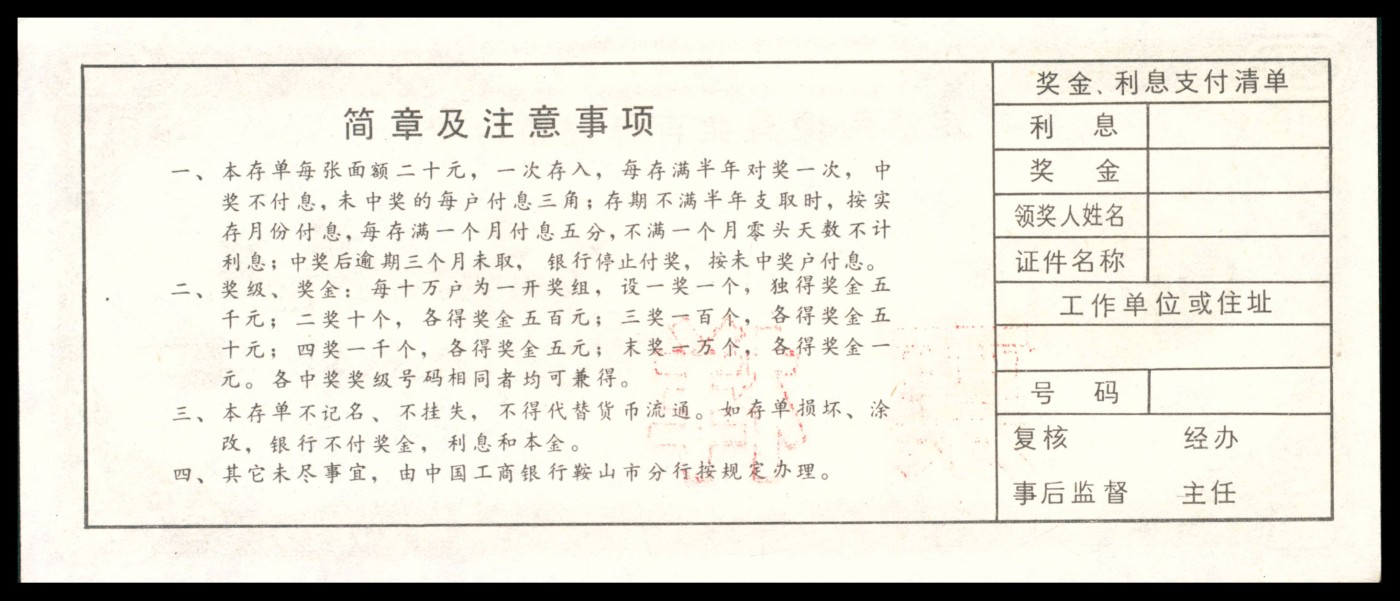 简章及注意事项
一、本存单每张面额二十元，一次存入，每存满半年对奖一次，中
奖不付息，未中奖的每户付息三角；存期不满半年支取时，按实
存月份付息，每存满一个月付息五分，不满一个月零头天数不计
利息；中奖后逾期三个月未取，银行停止付奖，按未中奖户付息。
二、奖级、奖金：每十万户为一开奖组，设一奖一个，独得奖金五
千元；二奖十个，各得奖金五百元；三奖一百个，各得奖金五
十元；四奖一千个，各得奖金五元；末奖一万个，各得奖金一
元。各中奖奖级号码相同者均可兼得。
三、本存单不记名、不挂失，不得代替货币流通。如存单损坏、涂
改，银行不付奖金，利息和本金。
四、其它未尽事宜，由中国工商银行鞍山市分行按规定办理。
奖金、利息支付清单
利息
奖金
领奖人姓名
证件名称
工作单位或住址
号码
复核 经办
事后监督 主任